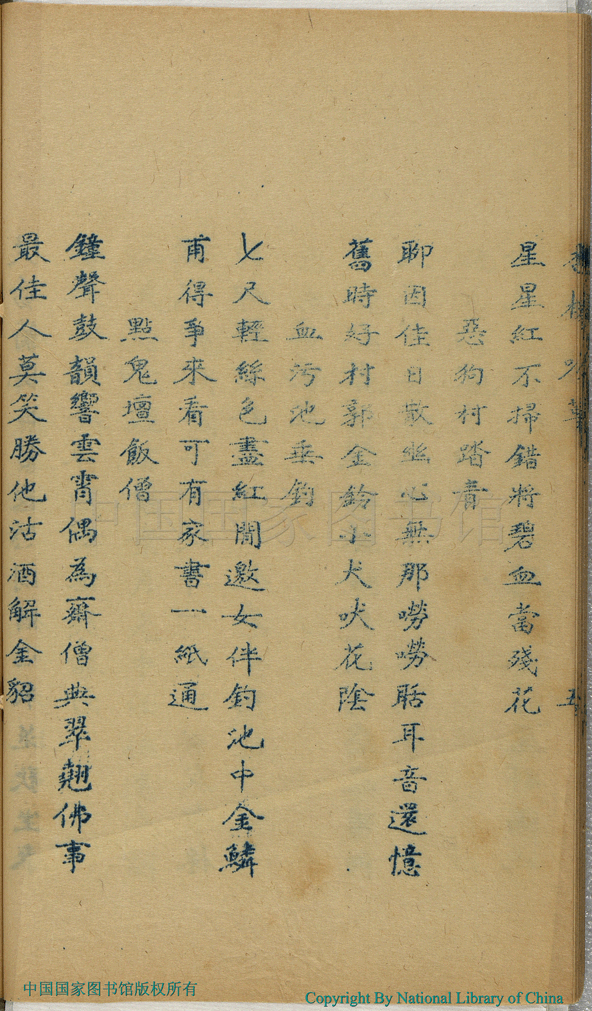 星星紅不掃錯將碧血當殘花
惡狗村踏青
聊因佳日散幽心無那嘮嘮聒耳音還憶
舊時好村郭金鈴小犬吠花陰
血污池垂釣
七尺輕絲色盡紅閒邀女伴釣池中金鱗
甫得爭來看可有家書一紙通
點鬼壇飯僧
鐘聲鼓韻響雲霄偶為齋僧典翠翹佛事
最佳人莫笑勝他沽酒解金貂
中国国家图书馆
中国国家图书馆版权所有
Copyright By National Library of China